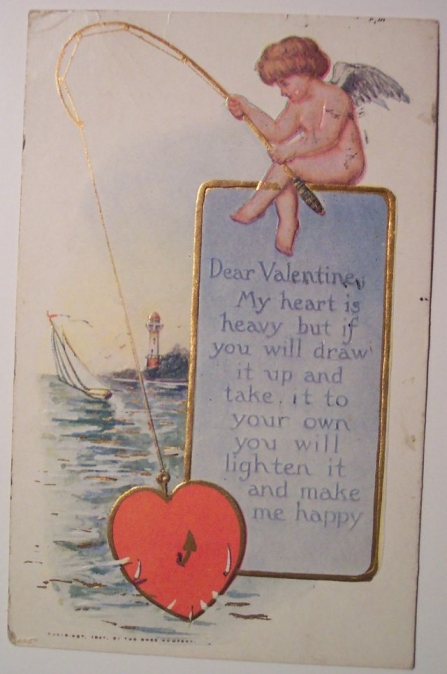 Dear Valentine,
My heart is
heavy but if
you will draw
it up and
take it to
your own
you will
lighten it
and make
me happy
COPYRIGHT, 1907, BY THE ROSE COMPANY